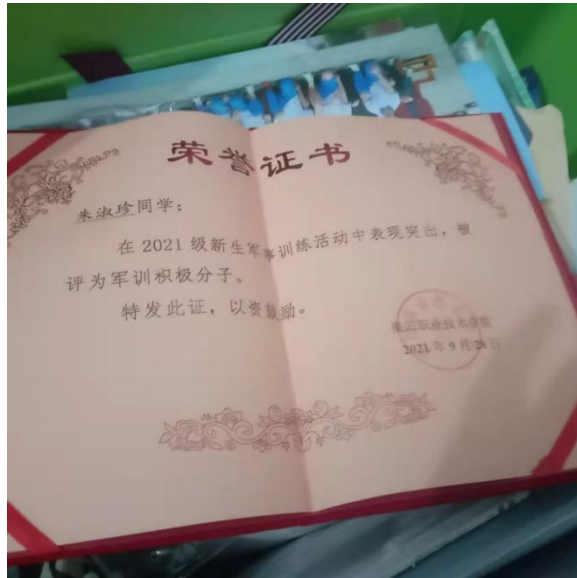 荣誉证书
朱淑珍同学：
在 2021 级新生军事训练活动中表现突出，被
评为军训积极分子。
特发此证，以资鼓励。
职业技术学院
2021 年 9 月 28 日